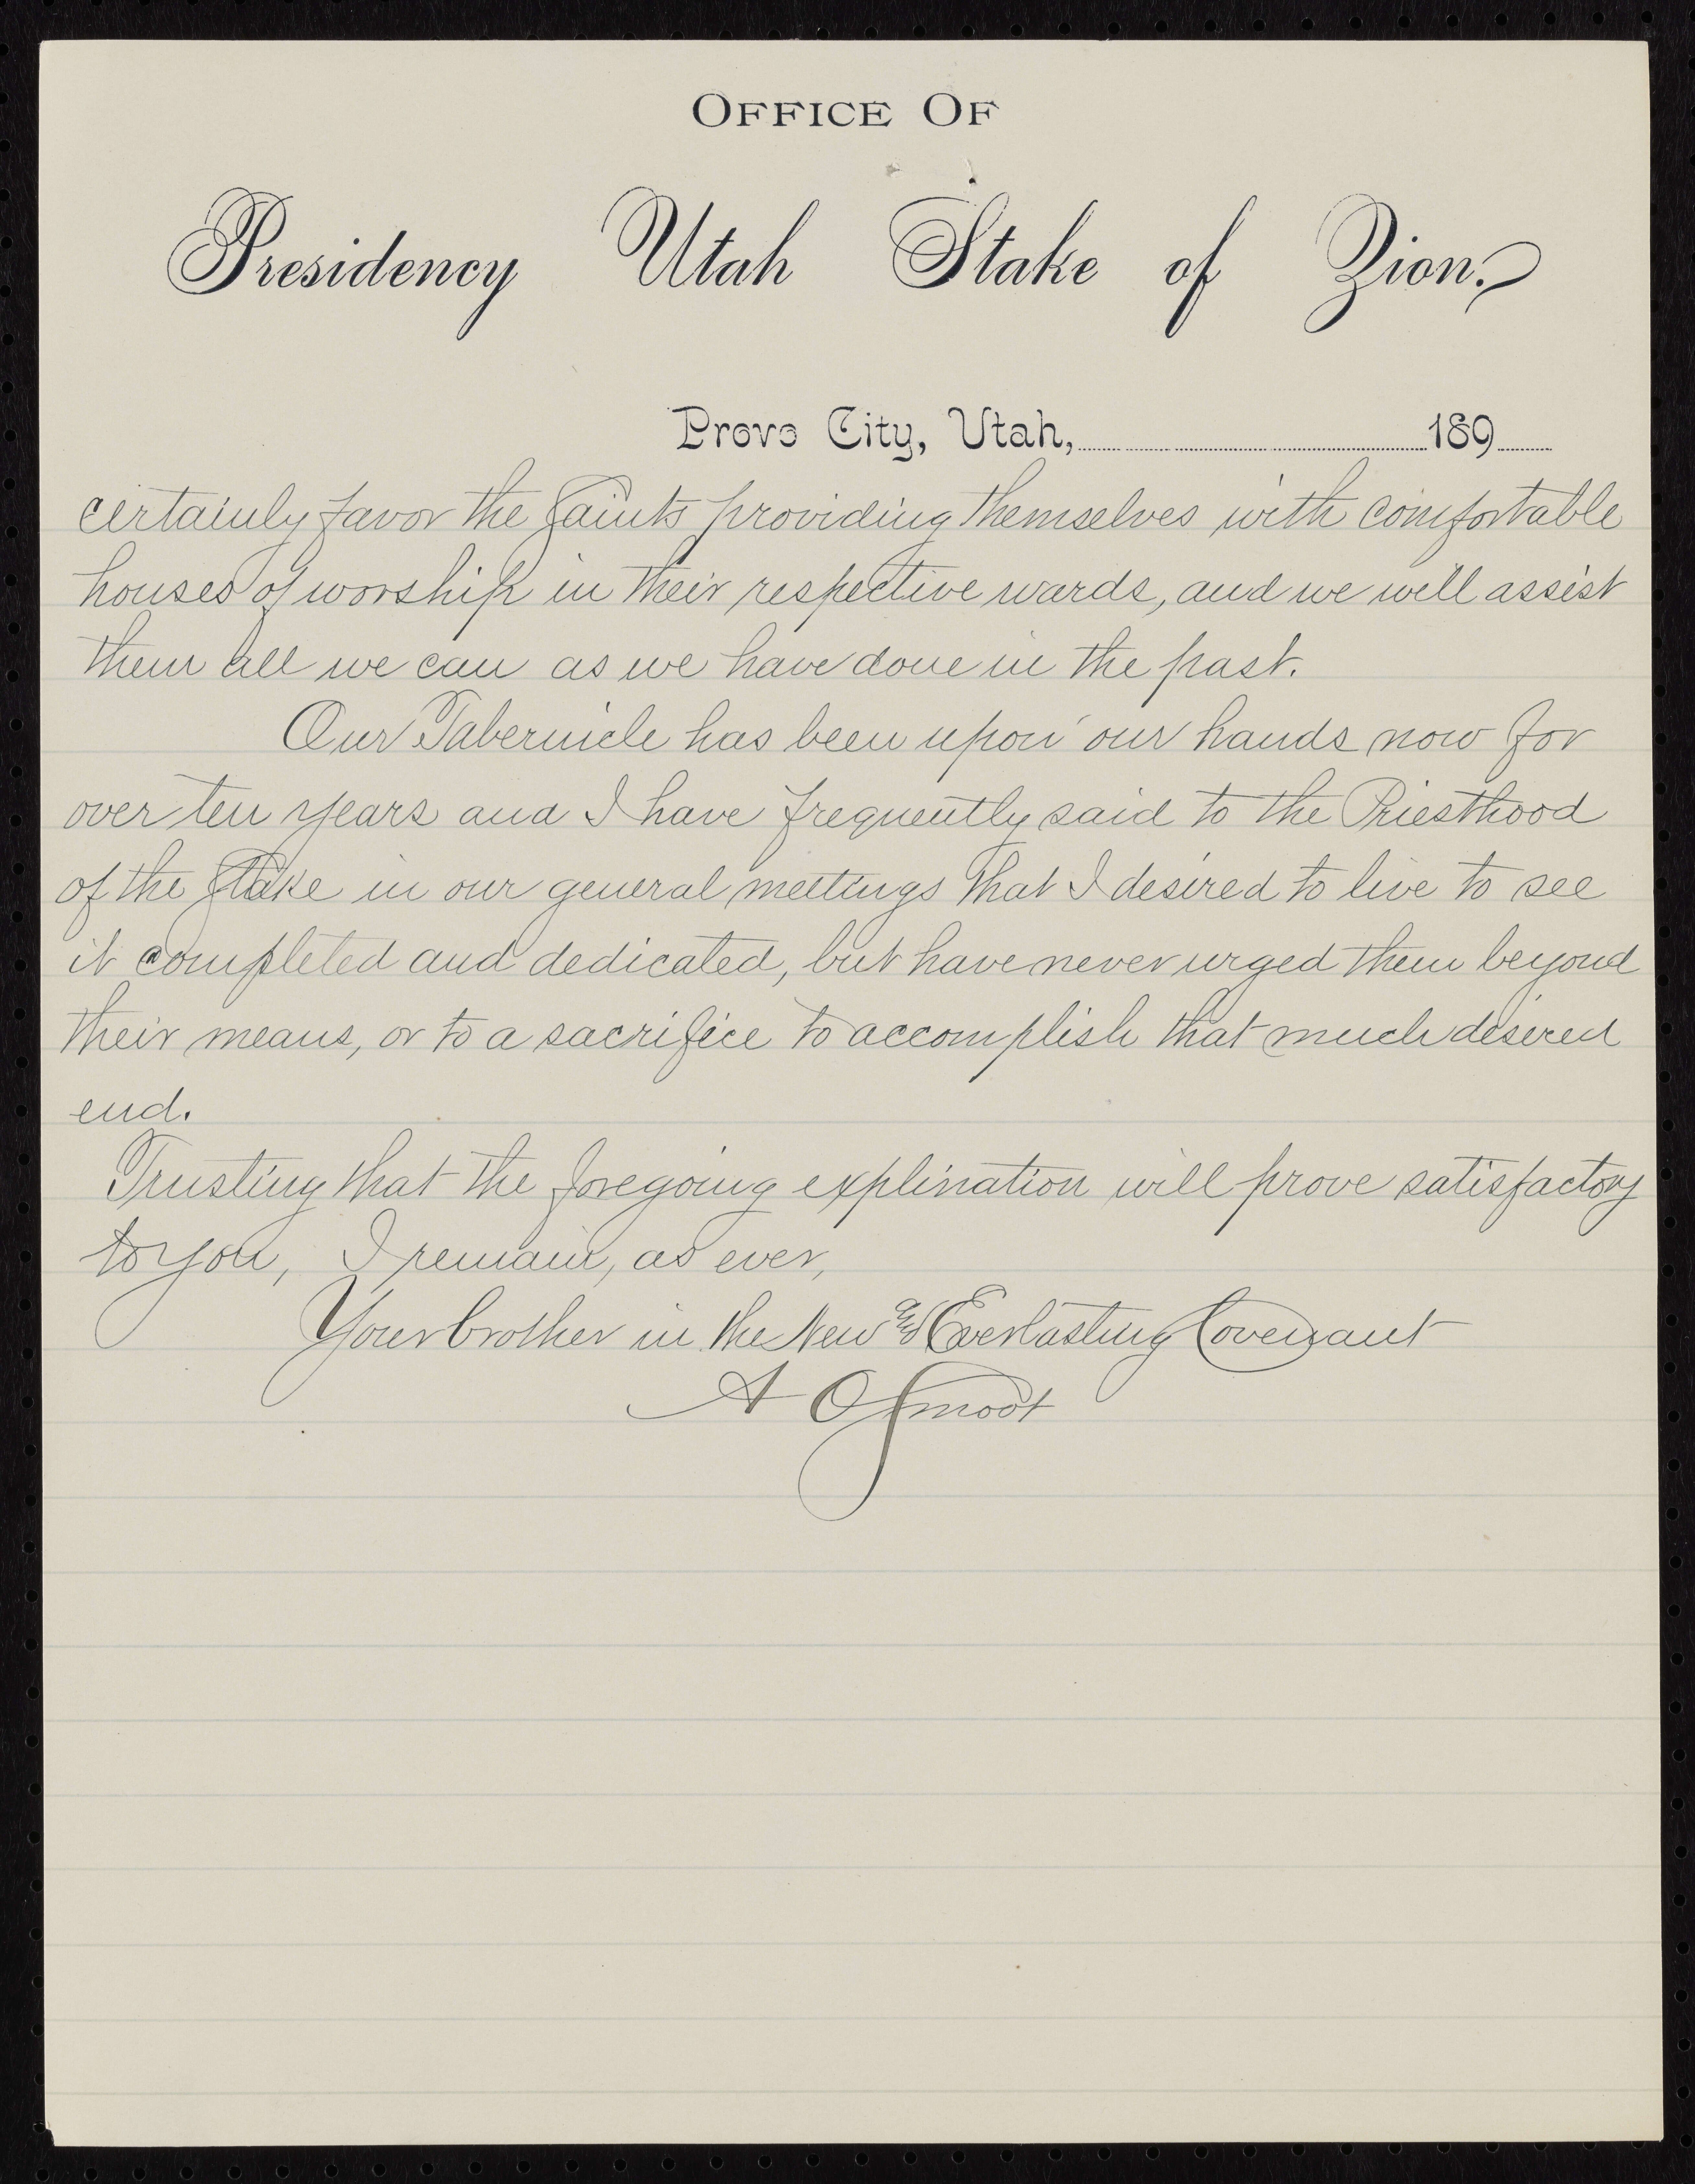 OFFICE OF
Presidency Utah Stake of Zion.
Provo City, Utah, 189
certainly favor the Saints providing themselves with comfortable
houses of worship in their respective wards, and we will assist
them all we can as we have done in the past.
Our Tabernicle has been upon our hands now for
over ten years and I have frequently said to the Priesthood
of the Stake in our general meetings that I desired to live to see
it completed and dedicated, but have never urged them beyond
their means, or to a sacrifice to accomplish that much desired
end.
Trusting that the foregoing explination will prove satisfactory
to you, I remain, as ever,
Your brother in the New and Everlasting Covenant
A O Smoot